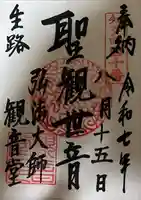 奉納 令和七年
八月十五日
聖観世音
弘法大師
観音堂
生路